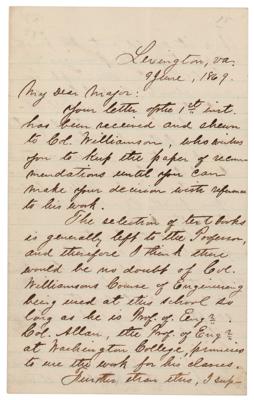 Lexington, Va.
9 June, 1869.
My dear Major:
Your letter of the 1st inst.
has been received and shewn
to Col. Williamson, who wishes
you to keep the paper of recom-
mendations until you can
make your decision with reference
to his work.
The selection of text books
is generally left to the Professor,
and therefore I think there
would be no doubt of Col.
Williamsons Course of Engineering
being used at this school so
long as he is Prof. of Eng'r.
Col. Allan, the Prof. of Eng'r.
at Washington College, promises
to use the work for his classes.
Further than this, I sup-